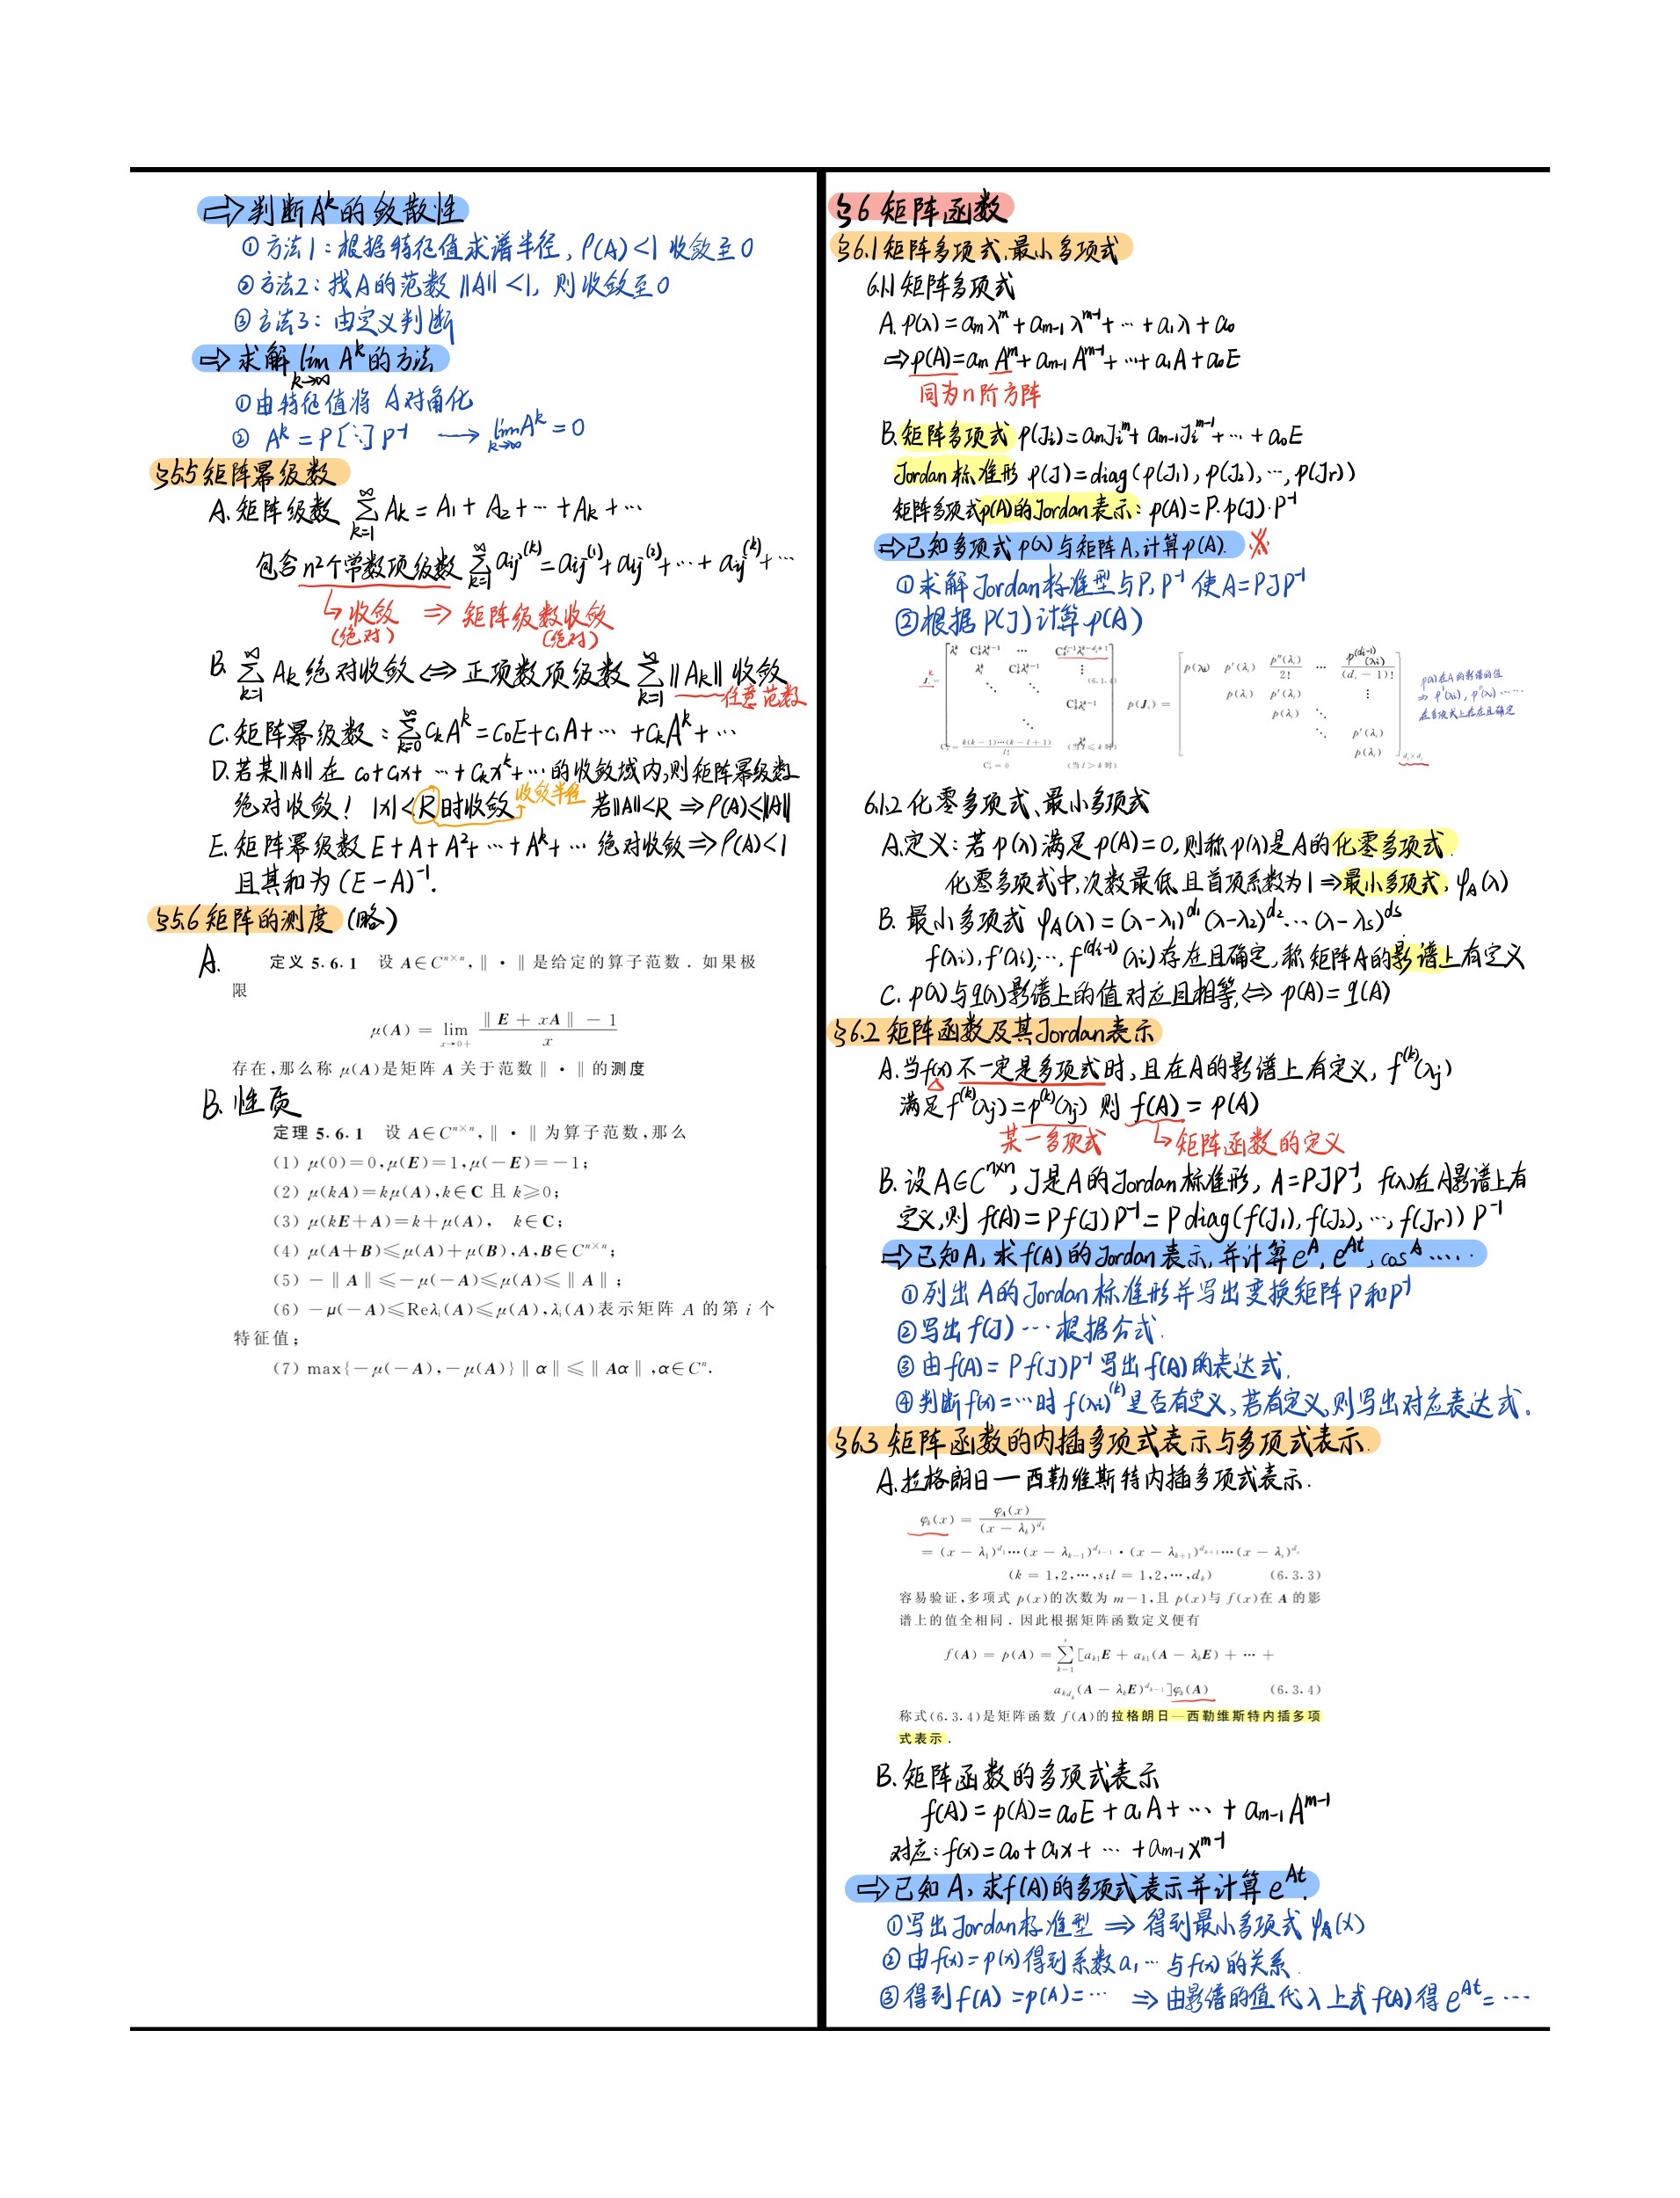 ⇒判断A^k的敛散性
①方法1：根据特征值求谱半径，ρ(A)<1 收敛至0
②方法2：找A的范数 ||A||<1, 则收敛至0
③方法3：由定义判断
⇒求解 lim A^k的方法
k→∞
①由特征值将 A对角化
② A^k = P[⋱]P^-1 → lim A^k = 0
k→∞
§5.5矩阵幂级数
A.矩阵级数 ∑ Ak = A1 + A2 + … + Ak + …
包含n²个常数项级数 ∑ aij^(k) = aij^(1) + aij^(2) + … + aij^(k) + …
↳收敛 ⇒ 矩阵级数收敛
(绝对) (绝对)
B. ∑ Ak 绝对收敛 ⇔ 正项数项级数 ∑ ||Ak|| 收敛
任意范数
C.矩阵幂级数：∑ CkA^k = C0E + C1A + … + CkA^k + …
D.若某||A||在 C0+C1x+…+Ckx^k+…的收敛域内,则矩阵幂级数
绝对收敛！ |x|<R时收敛 收敛半径 若||A||<R ⇒ ρ(A)≤||A||
E.矩阵幂级数E+A+A²+…+A^k+… 绝对收敛⇒ρ(A)<1
且其和为(E-A)^-1.
§5.6矩阵的测度 (略)
A. 定义 5.6.1 设 A∈C^n×n,‖·‖是给定的算子范数．如果极
限
μ(A) = lim (‖E + xA‖ - 1)/x
x→0+
存在,那么称 μ(A)是矩阵 A 关于范数‖·‖的测度
B. 性质
定理 5.6.1 设 A∈C^n×n,‖·‖为算子范数,那么
(1) μ(0)=0,μ(E)=1,μ(-E)=-1;
(2) μ(kA)=kμ(A),k∈C 且 k≥0;
(3) μ(kE+A)=k+μ(A), k∈C;
(4) μ(A+B)≤μ(A)+μ(B),A,B∈C^n×n;
(5) -‖A‖≤-μ(-A)≤μ(A)≤‖A‖;
(6) -μ(-A)≤Reλi(A)≤μ(A),λi(A)表示矩阵 A 的第 i 个
特征值;
(7) max{-μ(-A),-μ(A)}‖α‖≤‖Aα‖,α∈C^n.
§6 矩阵函数
§6.1矩阵多项式、最小多项式
6.1.1矩阵多项式
A. p(λ)=amλ^m+am-1λ^m-1+…+a1λ+a0
⇒p(A)=amA^m+am-1A^m-1+…+a1A+a0E
同为n阶方阵
B.矩阵多项式 p(Ji)=amJi^m+am-1Ji^m-1+…+a0E
Jordan标准形 p(J)=diag(p(J1),p(J2),…,p(Jr))
矩阵多项式p(A)的Jordan表示：p(A)=P·p(J)·P^-1
⇒已知多项式p(λ)与矩阵A,计算p(A).
①求解Jordan标准型与P,P^-1使A=PJP^-1
②根据P(J)计算p(A)
p(Ji) = [p(λi) p'(λi) p''(λi)/2! … p^(di-1)(λi)/(di-1)!
p(λi) p'(λi) ⋮
p(λi) ⋱
⋱ p'(λi)
p(λi)] di×di
p(λ)在A的影谱的值
⇒ p'(λi), p''(λi)……
在多项式上存在且确定
C = k(k-1)…(k-l+1)/l! (当l≤k时)
C = 0 (当l>k时)
6.1.2化零多项式、最小多项式
A.定义：若p(λ)满足p(A)=0,则称p(λ)是A的化零多项式.
化零多项式中,次数最低且首项系数为1⇒最小多项式, φA(λ)
B. 最小多项式 φA(λ)=(λ-λ1)^d1(λ-λ2)^d2…(λ-λs)^ds
f(λi),f'(λi),…,f^(di-1)(λi)存在且确定,称矩阵A的影谱上有定义
C. p(λ)与q(λ)影谱上的值对应且相等,⇔ p(A)=q(A)
§6.2矩阵函数及其Jordan表示
A.当f(x)不一定是多项式时,且在A的影谱上有定义, f^(k)(λj)
满足f^(k)(λj)=p^(k)(λj) 则 f(A) = p(A)
某一多项式 ↳矩阵函数的定义
B.设A∈C^n×n, J是A的Jordan标准形, A=PJP^-1, f(λ)在A影谱上有
定义,则 f(A)=Pf(J)P^-1=Pdiag(f(J1),f(J2),…,f(Jr))P^-1
⇒已知A,求f(A)的Jordan表示,并计算e^A, e^At, cos^A…….
①列出A的Jordan标准形并写出变换矩阵P和P^-1
②写出f(J)…根据公式.
③由f(A)=Pf(J)P^-1写出f(A)的表达式.
④判断f(x)=…时f(λi)^(k)是否有定义,若有定义,则写出对应表达式。
§6.3矩阵函数的内插多项式表示与多项式表示.
A.拉格朗日—西勒维斯特内插多项式表示.
φk(x) = φA(x)/(x-λk)^dk
= (x-λ1)^d1…(x-λk-1)^dk-1·(x-λk+1)^dk+1…(x-λs)^ds
(k = 1,2,…,s;l = 1,2,…,dk) (6.3.3)
容易验证,多项式 p(x)的次数为 m-1,且 p(x)与 f(x)在 A 的影
谱上的值全相同．因此根据矩阵函数定义便有
f(A) = p(A) = ∑[ak1E + ak1(A - λkE) + … +
akdk(A - λkE)^dk-1]φk(A) (6.3.4)
称式(6.3.4)是矩阵函数 f(A)的拉格朗日—西勒维斯特内插多项
式表示．
B.矩阵函数的多项式表示
f(A)=p(A)=a0E+a1A+…+am-1A^m-1
对应：f(x)=a0+a1x+…+am-1x^m-1
⇒已知A,求f(A)的多项式表示并计算e^At.
①写出Jordan标准型 ⇒ 得到最小多项式 φA(x)
②由f(x)=p(x)得到系数a1…与f(x)的关系.
③得到f(A)=p(A)=… ⇒ 由影谱的值代入上式f(A)得e^At=…